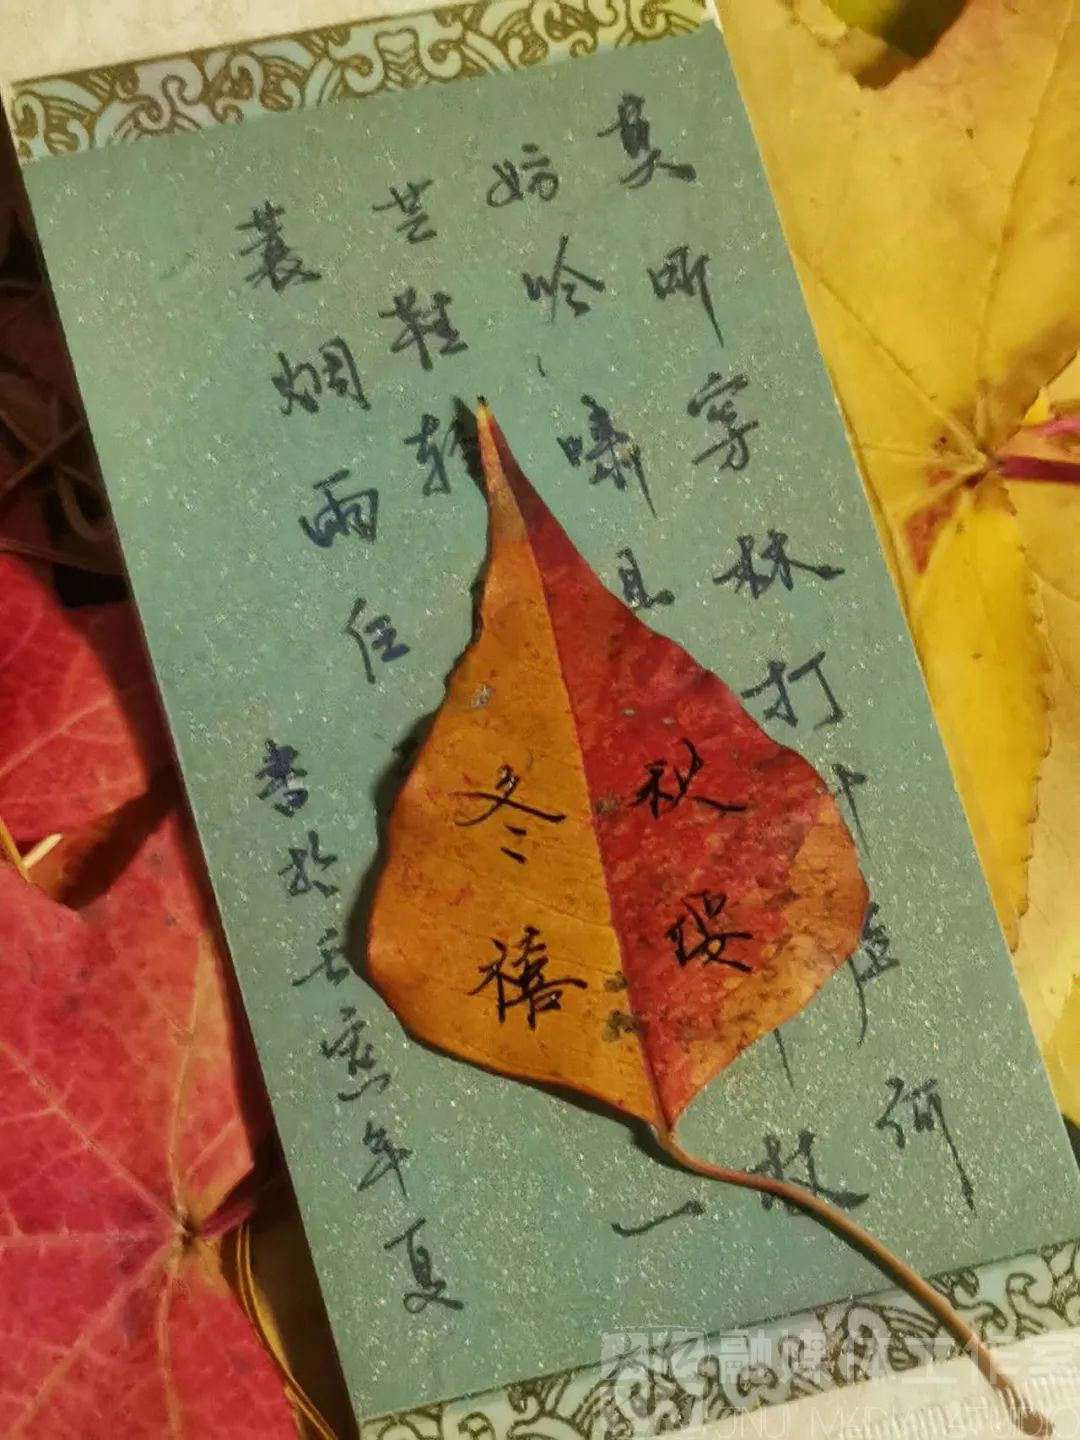 莫听穿林打叶声何
妨吟啸且 杖
芒鞋轻 一
蓑烟雨任
書於壬寅年夏
秋绥
冬禧
融媒体工作室
JNU MEDIA STUDIO